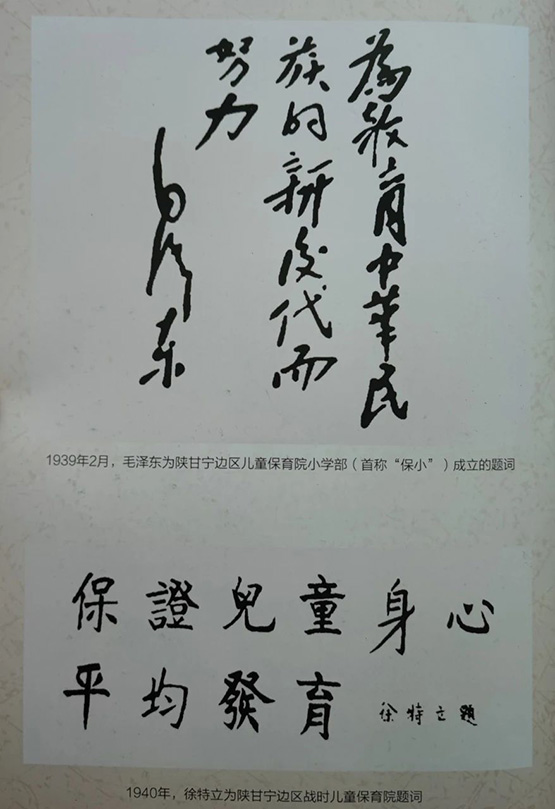 為教育中華民
族的新后代而
努力
毛泽东
1939年2月，毛泽东为陕甘宁边区儿童保育院小学部（首称“保小”）成立的题词
保證兒童身心
平均發育
徐特立題
1940年，徐特立为陕甘宁边区战时儿童保育院题词